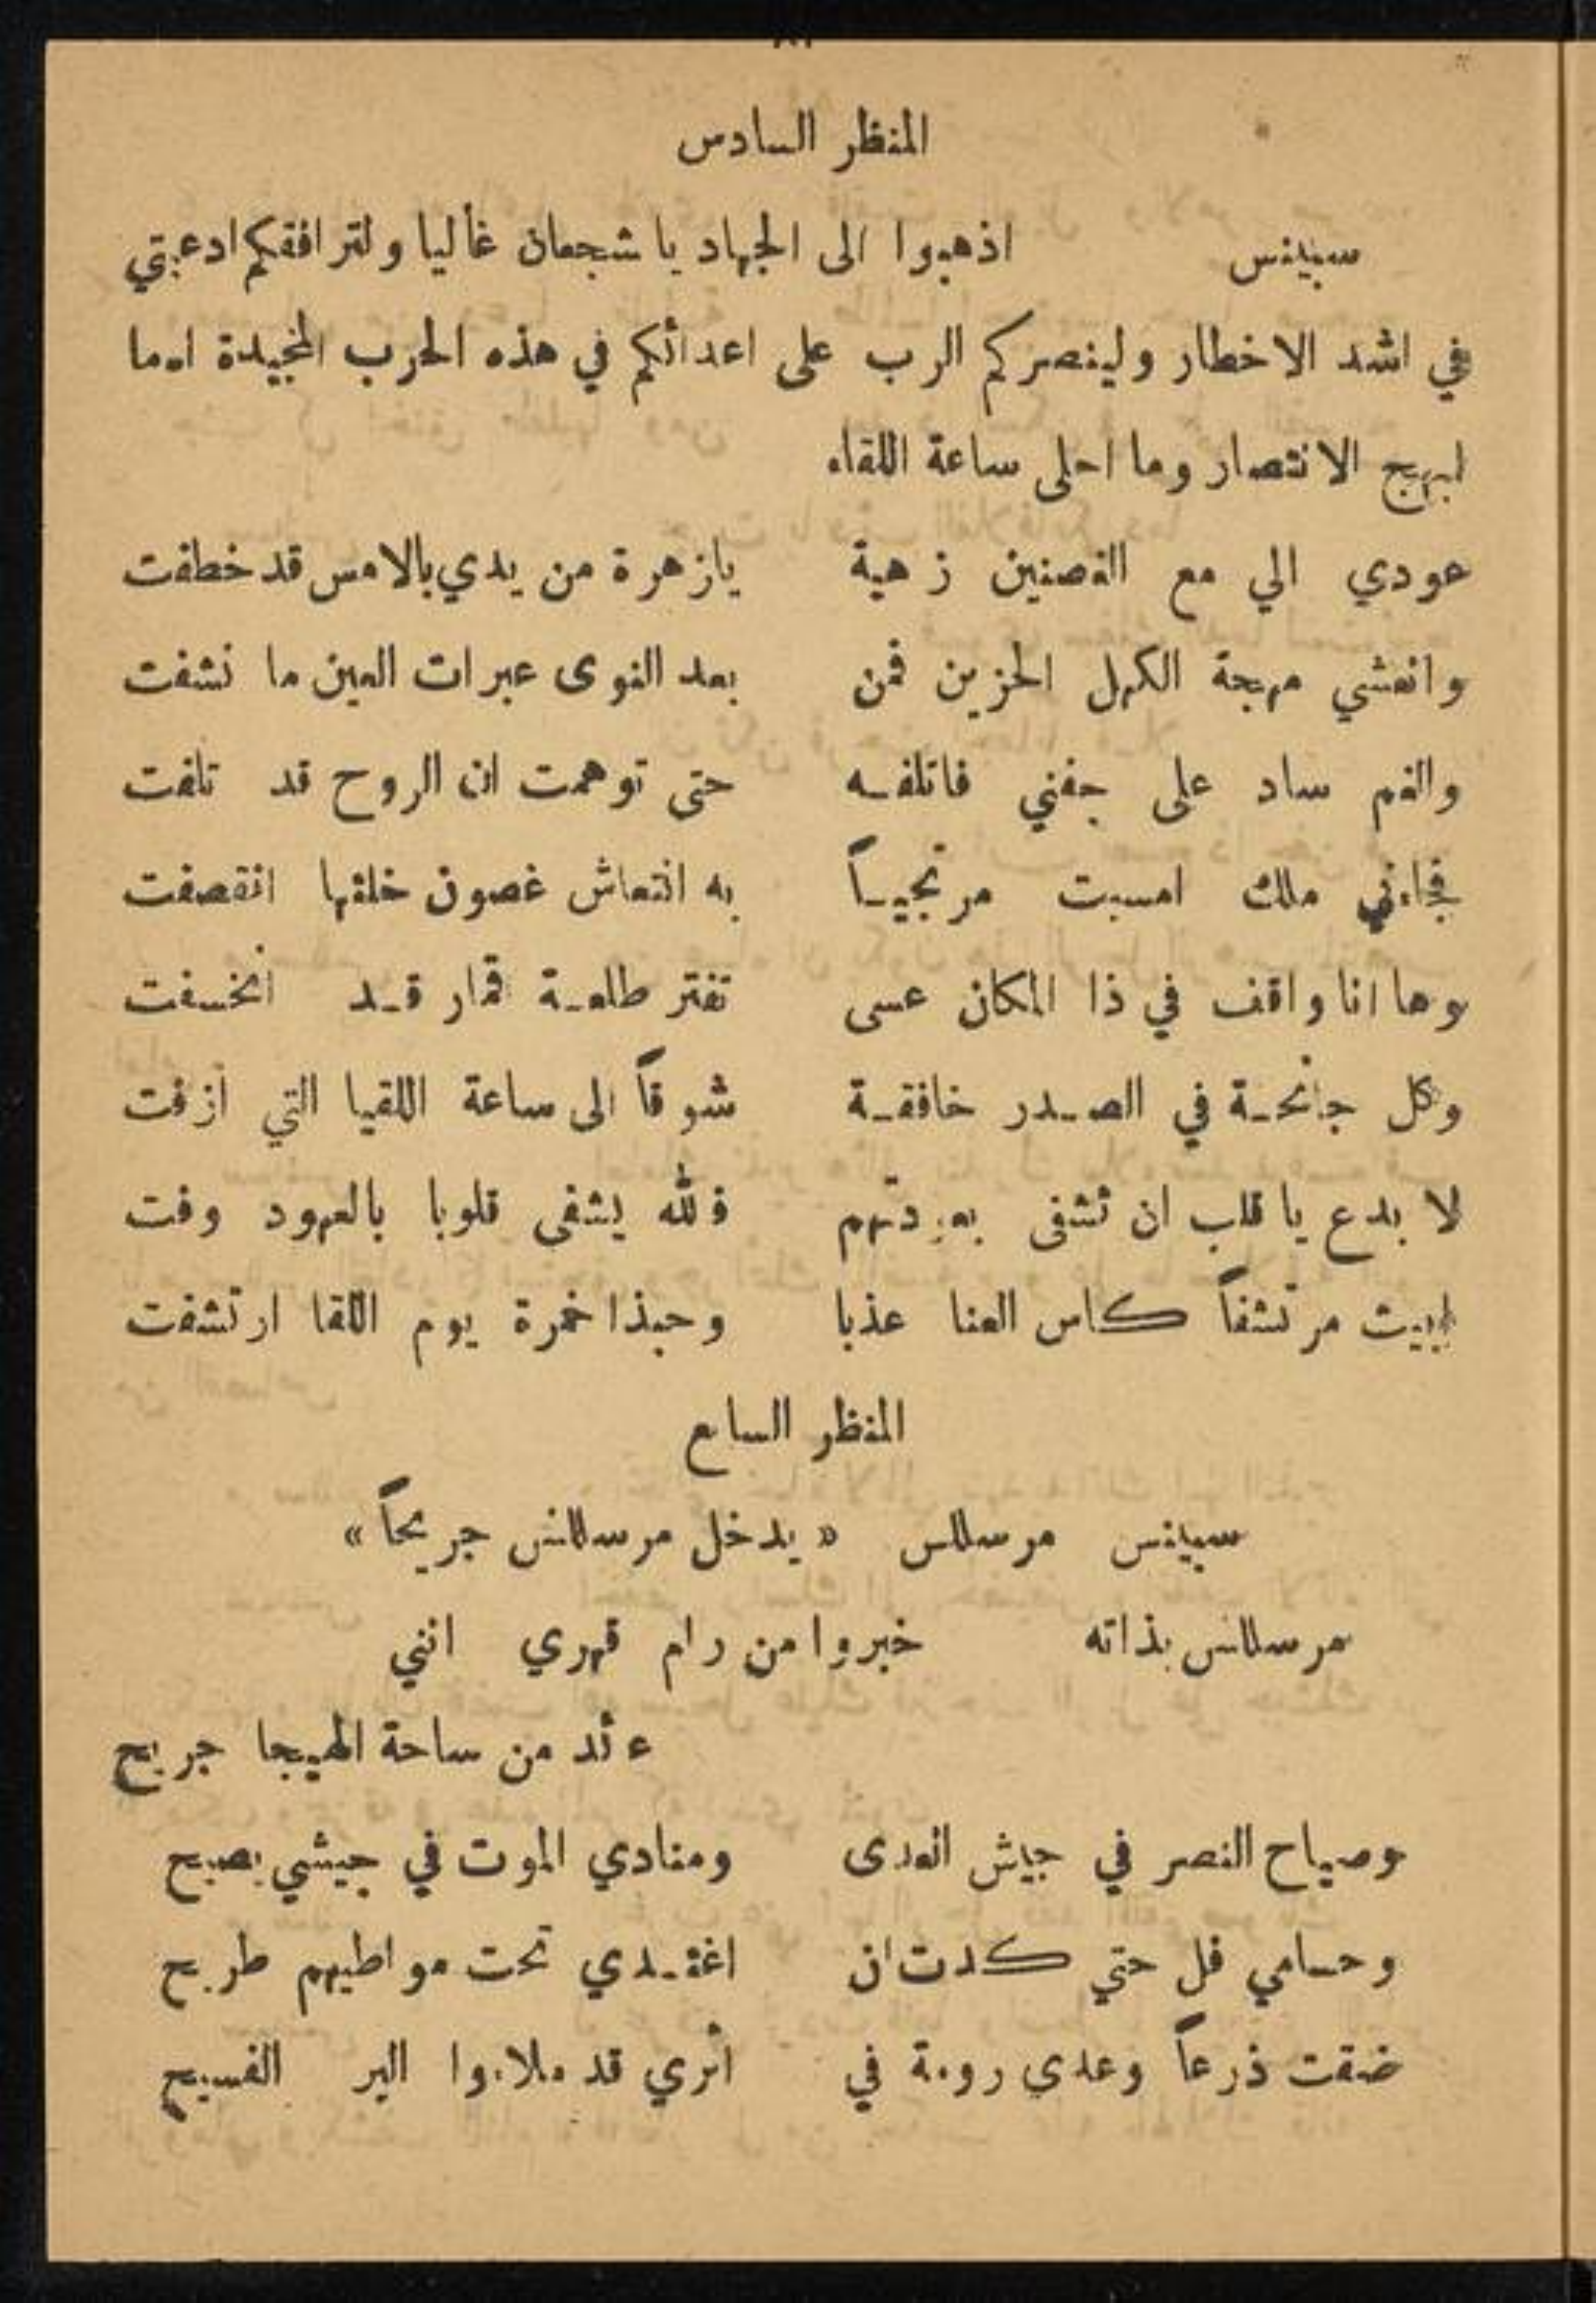 المنظر السادس
سبينس اذهبوا الى الجهاد يا شجعان غاليا ولترافقكم ادعيتي
في اشد الاخطار ولينصركم الرب على اعدائكم في هذه الحرب المجيدة اما
ابهج الانتصار وما احلى ساعة اللقاء
عودي الي مع الغصنين زهية يازهرة من يدي بالامس قد خطفت
وانعشي مهجة الكهل الحزين فمن بعد النوى عبرات العين ما نشفت
والغم ساد على جفني فاتلفه حتى توهمت ان الروح قد تلفت
فجاءني ملك امسيت مرتجياً به انتعاش غصون خلتها انقصفت
وها انا واقف في ذا المكان عسى تفتر طلعة قمار قد انخسفت
وكل جانحة في الصدر خافقة شوقاً الى ساعة اللقيا التي ازفت
لا بدع يا قلب ان تشفى بعودتهم فالله يشفى قلوبا بالعهود وفت
ابيت مرتشفاً كاس العنا عذبا وحبذا خمرة يوم اللقا ارتشفت
المنظر الساع
سبينس مرسللس « يدخل مرسللنس جريحاً »
مرسللنس بذاته خبروا من رام قهري انني
عائد من ساحة الهيجا جريح
وصياح النصر في جيش العدى ومنادي الموت في جيشي يصيح
وحسامي فل حتي كدت ان اغتدي تحت مواطيهم طريح
ضقت ذرعاً وعدى رومة في اثري قد ملاءوا البر الفسيح